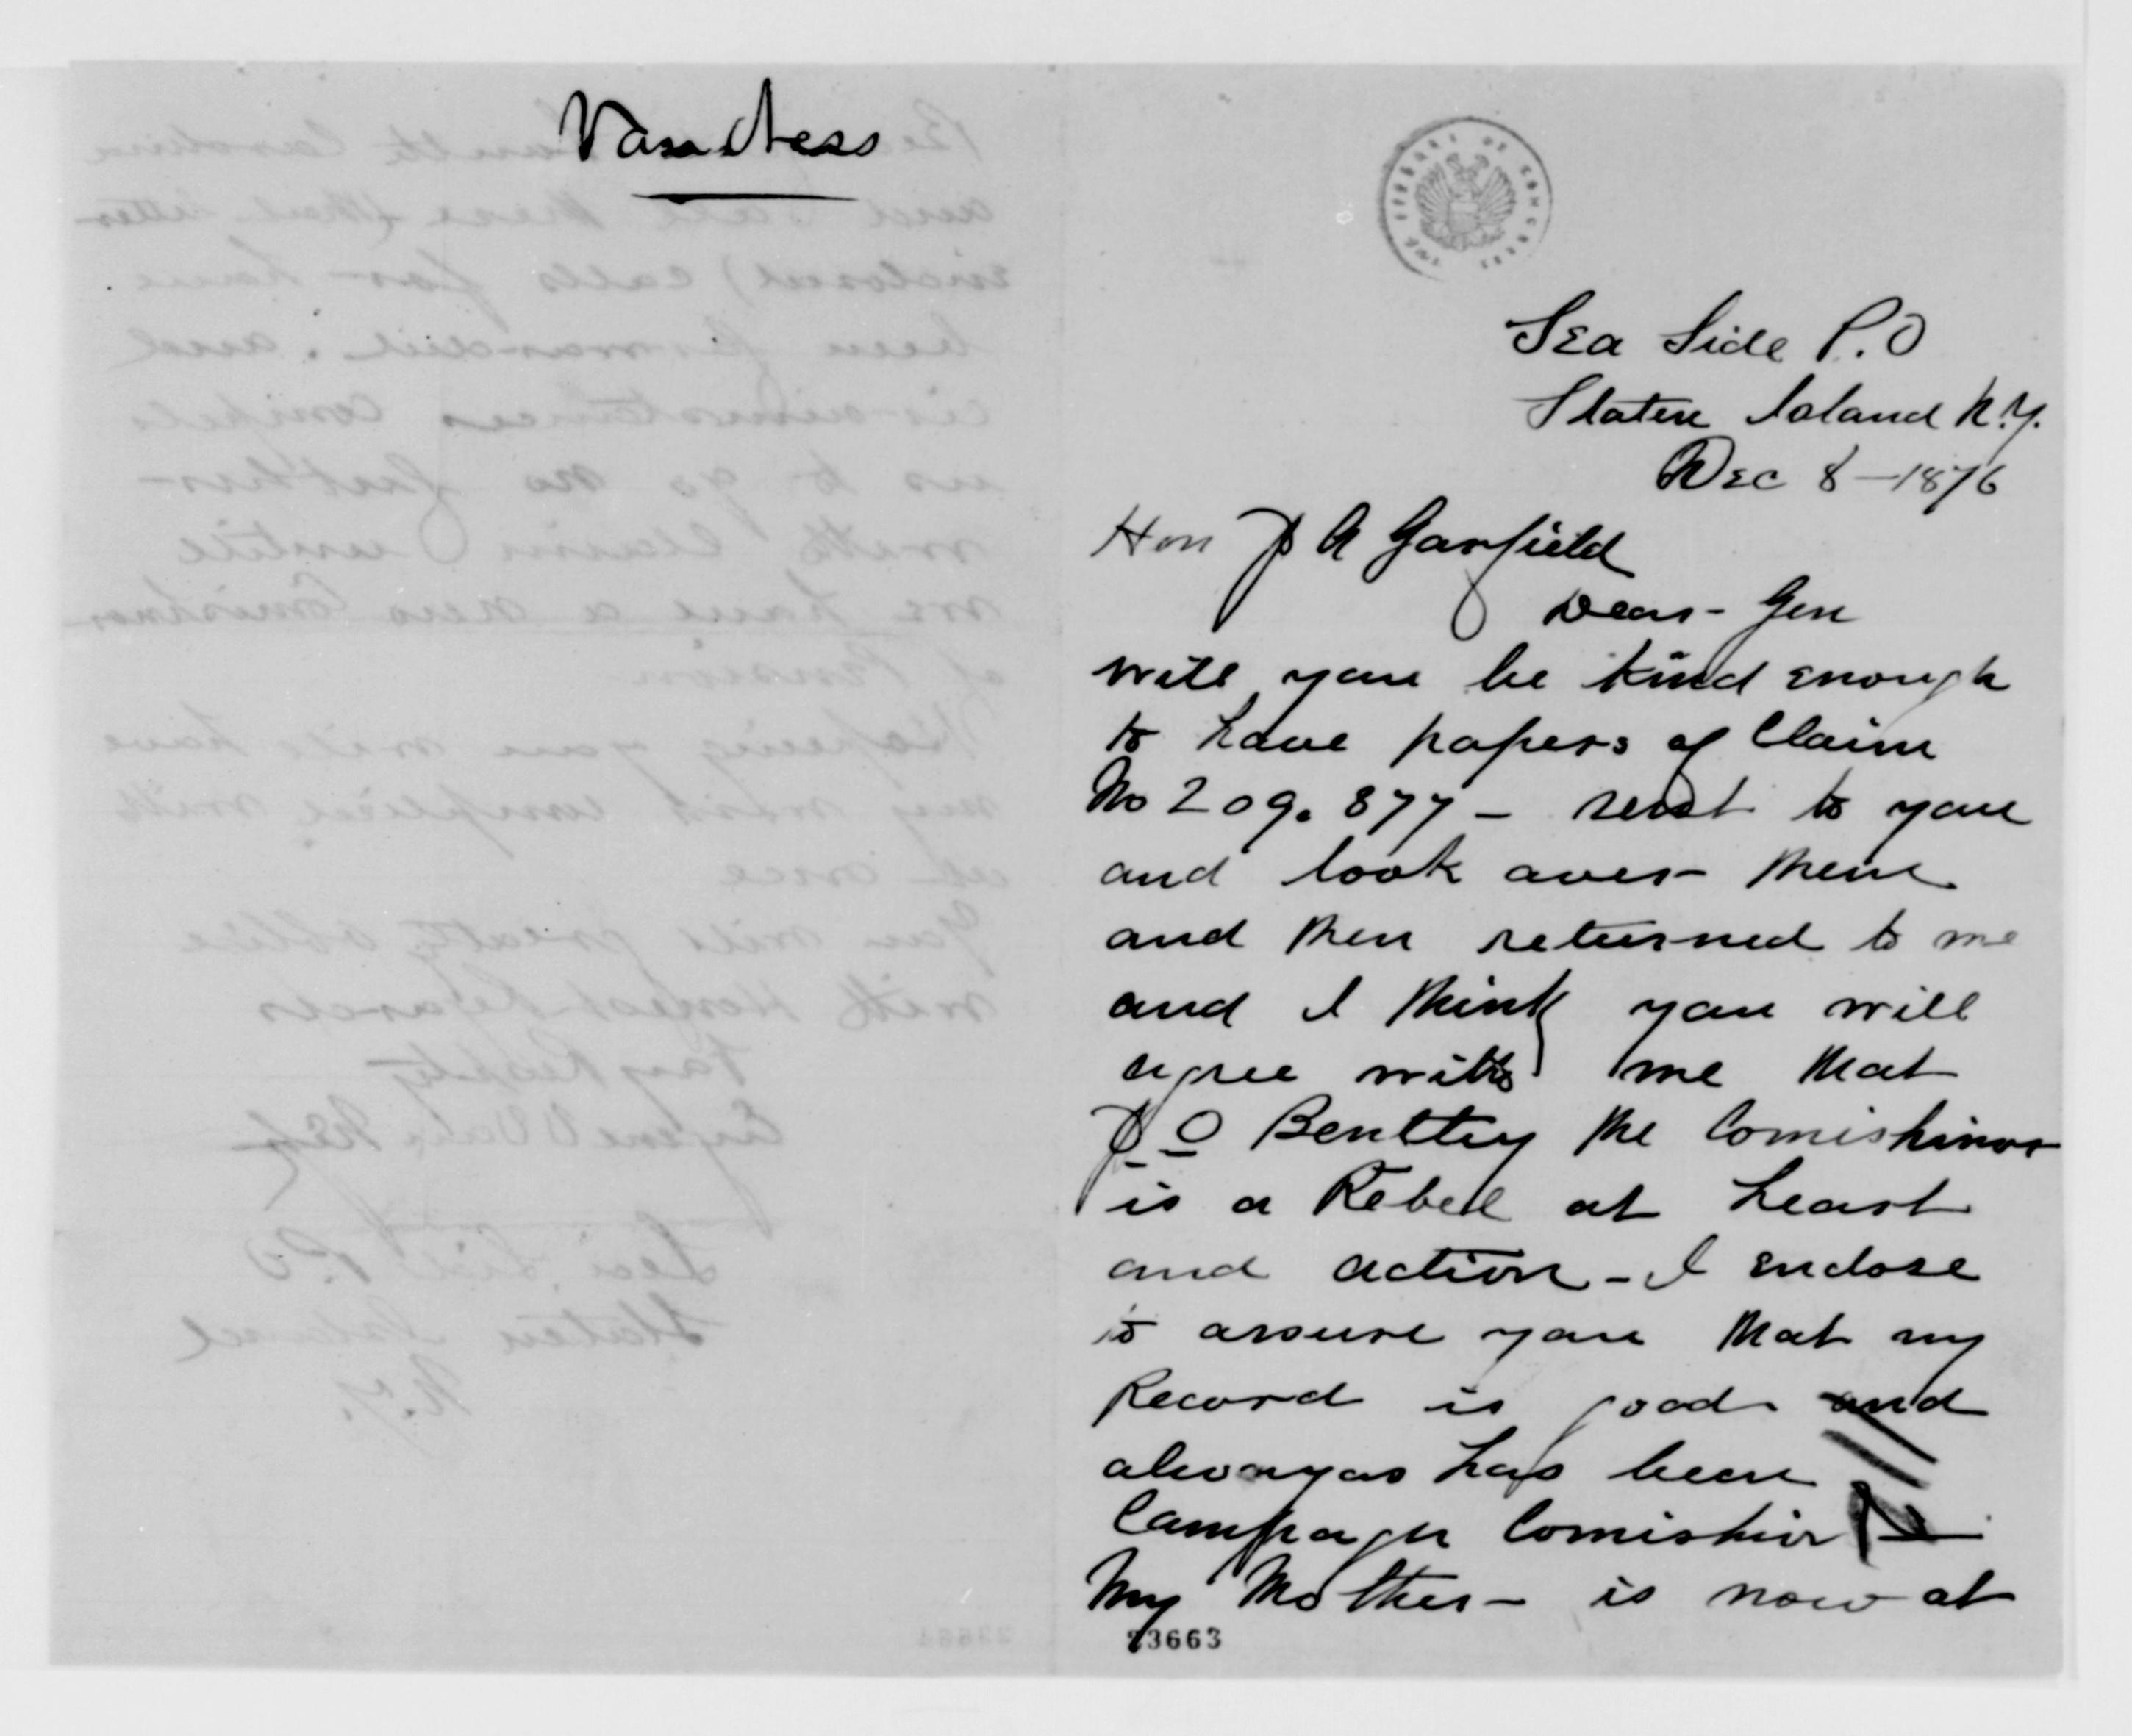 Van Ness
THE LIBRARY OF CONGRESS
Sea Side P.O
Staten Island N.Y.
Dec 8 - 1876
Hon J A Garfield
Dear Gen
will you be kind enough
to have papers of Claim
No 209.877 - sent to you
and look over them
and then returned to me
and I think you will
agree with me that
J O Benttey the Comishinor
is a Rebel at heart
and action - I enclose
to assure you that my
Record is good and
alwayas has been
Campagn Comishin
My Mother is now at
23663